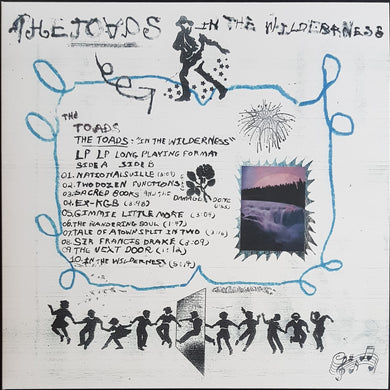 THE TOADS IN THE WILDERNESS
THE
TOADS
THE TOADS: "IN THE WILDERNESS"
LP LP LONG PLAYING FORMAT
SIDE A SIDE B
01. NATIONALSVILLE
02. TWO DOZEN FUNCTIONS
03. SACRED BOOKS
DAMAGE DONE
04. EX-KGB (3:48)
05. GIMMIE LITTLE MORE (3:09)
06. THE WANDERING SOUL (1:47)
07. TALE OF A TOWN SPLIT IN TWO
08. SIR FRANCIS DRAKE (3:09)
09 THE NEXT DOOR
10. IN THE WILDERNESS